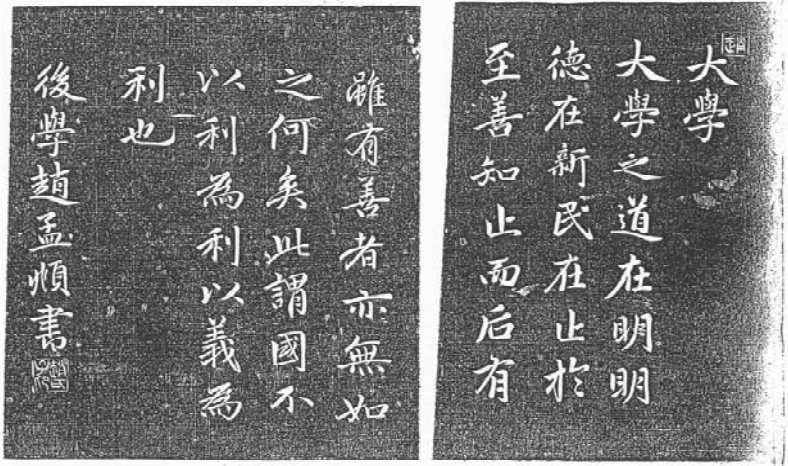 大學
大學之道在明明
德在新民在止於
至善知止而后有
雖有善者亦無如
之何矣此謂國不
以利為利以義為
利也
後學趙孟順書